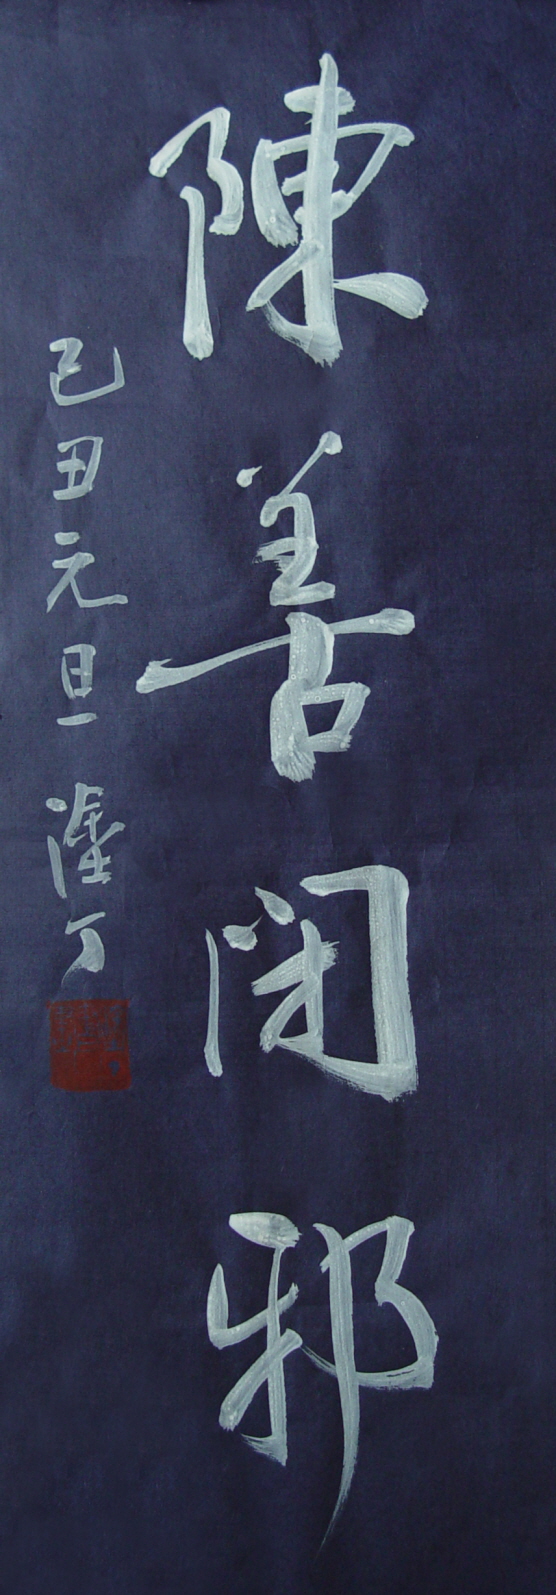 陳善閉邪
己丑元旦